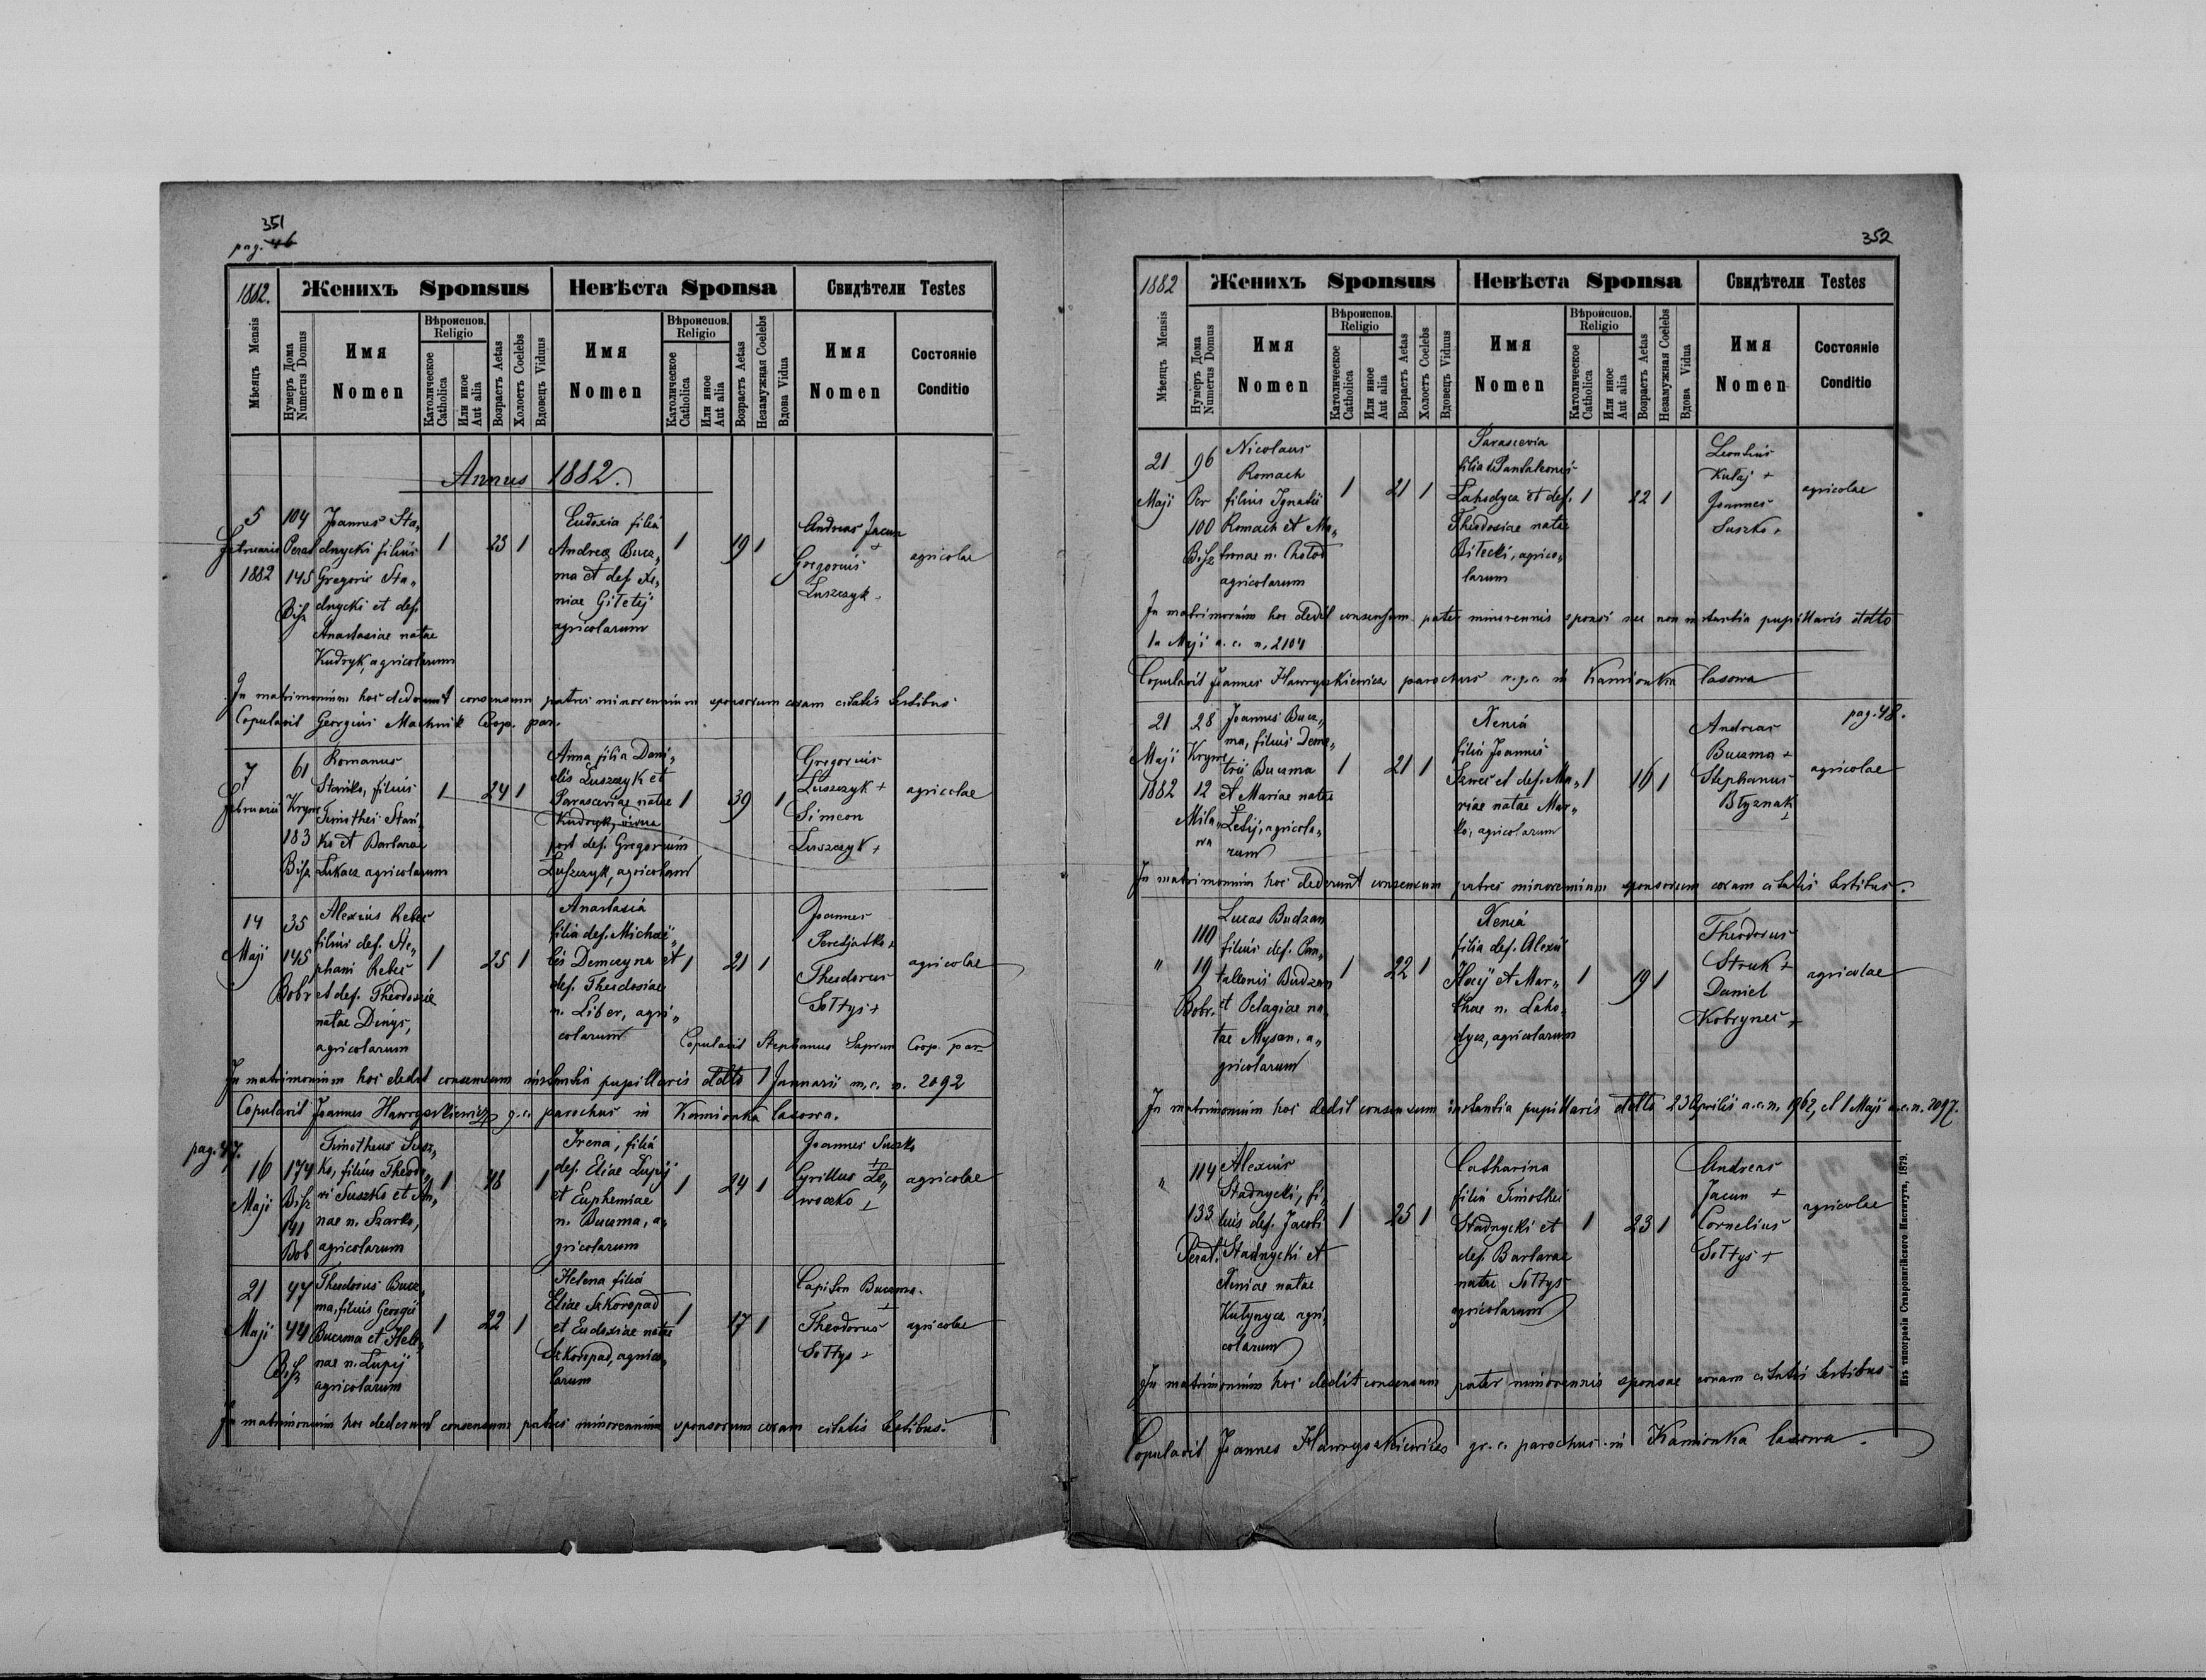 351
pag. 46
1882.
Женихъ Sponsus
Невѣста Sponsa
Свидѣтели Testes
Мѣсяцъ Mensis
Нумеръ Дома
Numerus Domus
Имя
Nomen
Вѣроиспов.
Religio
Католическое
Catholica
Или иное
Aut alia
Возрастъ Aetas
Холостъ Coelebs
Вдовецъ Viduus
Имя
Nomen
Вѣроиспов.
Religio
Католическое
Catholica
Или иное
Aut alia
Возрастъ Aetas
Незамужная Coelebs
Вдова Vidua
Имя
Nomen
Состояніе
Conditio
Annus 1882.
5
Februarii
1882
104
Perat
145
Bisz
Joannes Sta„
dnycki filius
Gregorii Sta„
dnycki et def.
Anastasiae natae
Kudryk, agricolarum
1 23 1
Eudoxia filia
Andrea Bucz„
ma et def. Xe„
niae Giletij
agricolarum
1 19 1
Andreas Jacun
+
Gregorius
Luszczyk
agricolae
In matrimonium hoc dederunt consensum patres minorennium sponsorum coram citatis testibus
Copulavit Georgius Machnik Coop. par.
7
Februarii
61
Kryne
183
Bisz
Romanus
Stańko, filius
Timothei Stań„
ko et Barbarae
Lukacz agricolarum
1 24 1
Anna filia Dani„
elis Luszczyk et
Parasceviae natae
Kudryk, vidua
post def. Gregorium
Luszczyk, agricolam
1 39 1
Gregorius
Luszczyk +
Simeon
Luszczyk +
agricolae
14
Maji
35
145
Bobr
Alexius Rebec
filius def. Ste„
phani Rebec
et def. Theodosiae
natae Dinys,
agricolarum
1 25 1
Anastasia
filia def. Michaë„
lis Demczyna et
def. Theodosiae
n. Liber, agri„
colarum
1 21 1
Joannes
Peredjatko +
Theodorus
Sołtys +
agricolae
Copulavit Stephanus Saprun Coop. par.
In matrimonium hoc dedit consensum instantia pupillaris ddto 1 Januarii m.c. n. 2092
Copulavit Joannes Hawryszkiewicz g.c. parochus in Kamionka lasowa.
pag. 47.
16
Maji
174
Bisz
141
Bob
Timotheus Susz„
ko, filius Theodo„
ri Suszko et An„
nae n. Szarko,
agricolarum
1 48 1
Irena, filia
def. Eliae Lupij
et Euphemiae
n. Buczma, a„
gricolarum
1 24 1
Joannes Suszko
+
Cyrillus Le„
woczko +
agricolae
21
Maji
47
44
Bisz
Theodorus Bucz„
ma, filius Georgii
Buczma et Hele„
nae n. Lupij
agricolarum
1 22 1
Helena filia
Eliae Szkoropad
et Eudoxiae natae
Szkoropad, agrico„
larum
1 17 1
Capiton Buczma
+
Theodorus
Sołtys +
agricolae
In matrimonium hoc dederunt consensum patres minorennium sponsorum coram citatis testibus.
352
1882
Женихъ Sponsus
Невѣста Sponsa
Свидѣтели Testes
Мѣсяцъ Mensis
Нумеръ Дома
Numerus Domus
Имя
Nomen
Вѣроиспов.
Religio
Католическое
Catholica
Или иное
Aut alia
Возрастъ Aetas
Холостъ Coelebs
Вдовецъ Viduus
Имя
Nomen
Вѣроиспов.
Religio
Католическое
Catholica
Или иное
Aut alia
Возрастъ Aetas
Незамужная Coelebs
Вдова Vidua
Имя
Nomen
Состояніе
Conditio
21
Maji
96
Per
100
Bisz
Nicolaus
Romach
filius Ignatii
Romach et Ma„
tronae n. Chołod
agricolarum
1 21 1
Parascevia
filia Pantaleonis
Lahodycz et def.
Theodosiae natae
Biłecki, agrico„
larum
1 22 1
Leontius
Kułaj +
Joannes
Suszko +
agricolae
In matrimonium hoc dedit consensum pater minorennis sponsi nec non instantia pupillaris ddto
1a Maji a. c. n. 2104
Copulavit Joannes Hawryszkiewicz parochus r.g.c. in Kamionka lasowa
pag. 48.
21
Maji
1882
28
Kryne
12
Mila„
wa
Joannes Bucz„
ma, filius Deme„
trii Buczma
et Mariae natae
Lesij, agricola„
rum
1 21 1
Xenia
filia Joannis
Szwec et def. Ma„
riae natae Mar„
ko, agricolarum
1 16 1
Andreas
Buczma +
Stephanus
Błyznak
+
agricolae
In matrimonium hoc dederunt consensum patres minorennium sponsorum coram citatis testibus.
"
119
19
Bobr.
Lucas Budzan
filius def. Pan„
taleonis Budzan
et Pelagiae na„
tae Mysan, a„
gricolarum
1 22 1
Xenia
filia def. Alexii
Hocij et Mar„
thae n. Laho„
dycz, agricolarum
1 19 1
Theodorus
Struk +
Daniel
Kobryner +
agricolae
In matrimonium hoc dedit consensum instantia pupillaris ddto 23 Aprilis a.c. n. 1962, et 1 Maji a.c. n. 2097.
"
114
133
Perat.
Alexius
Stadnycki, fi„
lius def. Jacobi
Stadnycki et
Xeniae natae
Kutynycz agri„
colarum
1 25 1
Catharina
filia Timothei
Stadnycki et
def. Barbarae
natae Sołtys
agricolarum
1 23 1
Andreas
Jacun +
Cornelius
Sołtys +
agricolae
In matrimonium hoc dedit consensum pater minorennis sponsae coram citatis testibus
Copulavit Joannes Hawryszkiewicz gr. c. parochus in Kamionka lasowa.
Изъ типографіи Ставропигійского Института, 1879.